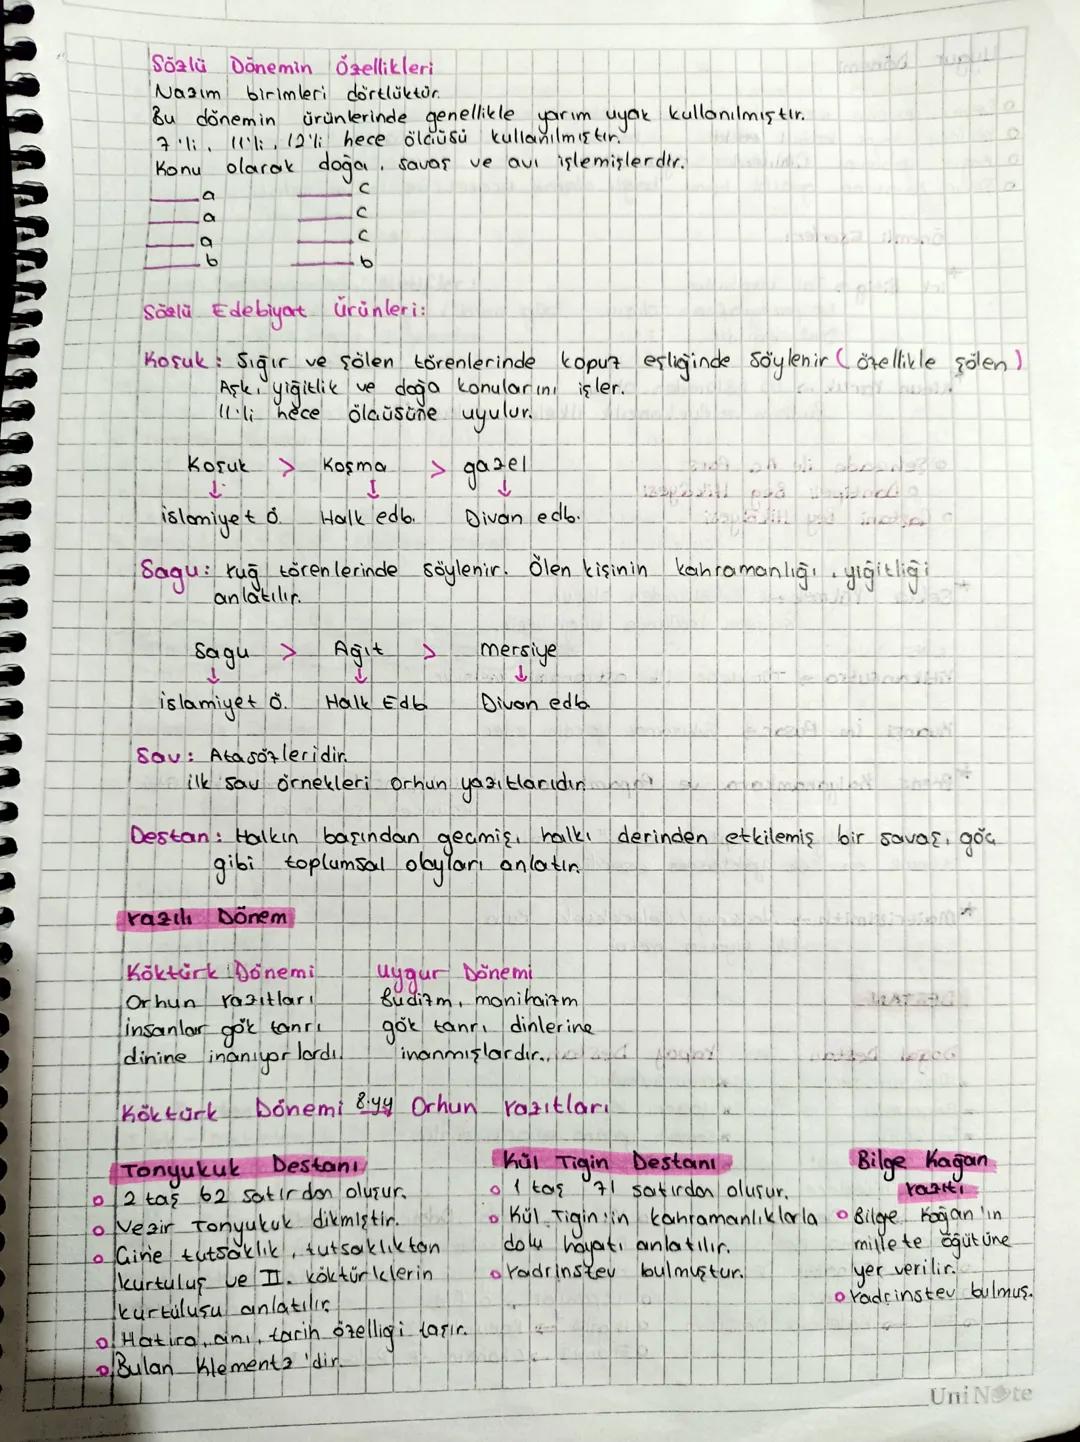 Sözlü Dönemin Özellikleri
Nazım birimleri dörtlüktür.
Bu dönemin ürünlerinde genellikle yarım uyak kullanılmıştır.
7'li, 11'li, 12'li hece ölçüsü kullanılmıştır.
Konu olarak doğa, savaş ve avı işlemişlerdir.
a c
a c
a c
b b
Sözlü Edebiyat Ürünleri:
Koşuk: Sığır ve şölen törenlerinde kopuz eşliğinde söylenir (özellikle şölen)
Aşk, yiğitlik ve doğa konularını işler.
11'li hece ölçüsüne uyulur.
Koşuk > Koşma > gazel
↓ ↓ ↓
islamiyet ö. Halk edb. Divan edb.
Sagu: Yuğ törenlerinde söylenir. Ölen kişinin kahramanlığı, yiğitliği
anlatılır.
Sagu > Ağıt > mersiye
↓ ↓ ↓
islamiyet ö. Halk Edb Divan edb
Sav: Atasözleridir.
ilk sav örnekleri orhun yazıtlarıdır.
Destan: Halkın başından geçmiş, halkı derinden etkilemiş bir savaş, göç
gibi toplumsal olayları anlatır.
Yazılı Dönem
Köktürk Dönemi Uygur Dönemi
Orhun Yazıtları Budizm, manihaizm
insanlar gök tanrı gök tanrı dinlerine
dinine inanıyorlardı. inanmışlardır.
Köktürk Dönemi 8.yy Orhun Yazıtları
Tonyukuk Destanı
2 taş 62 satırdan oluşur.
Vezir Tonyukuk dikmiştir.
Çine tutsaklık, tutsaklıktan
kurtuluş ve II. köktürklerin
kurtuluşu anlatılır.
Hatıra, anı, tarih özelliği taşır.
Bulan Klementz'dir.
Kül Tigin Destanı
1 taş 71 satırdan oluşur.
Kül Tigin'in kahramanlıklarla
dolu hayatı anlatılır.
Yadrinstev bulmuştur.
Bilge Kağan
Yazıtı
Bilge Kağan'ın
millete öğütüne
yer verilir.
Yadrinstev bulmuş.
UniNote